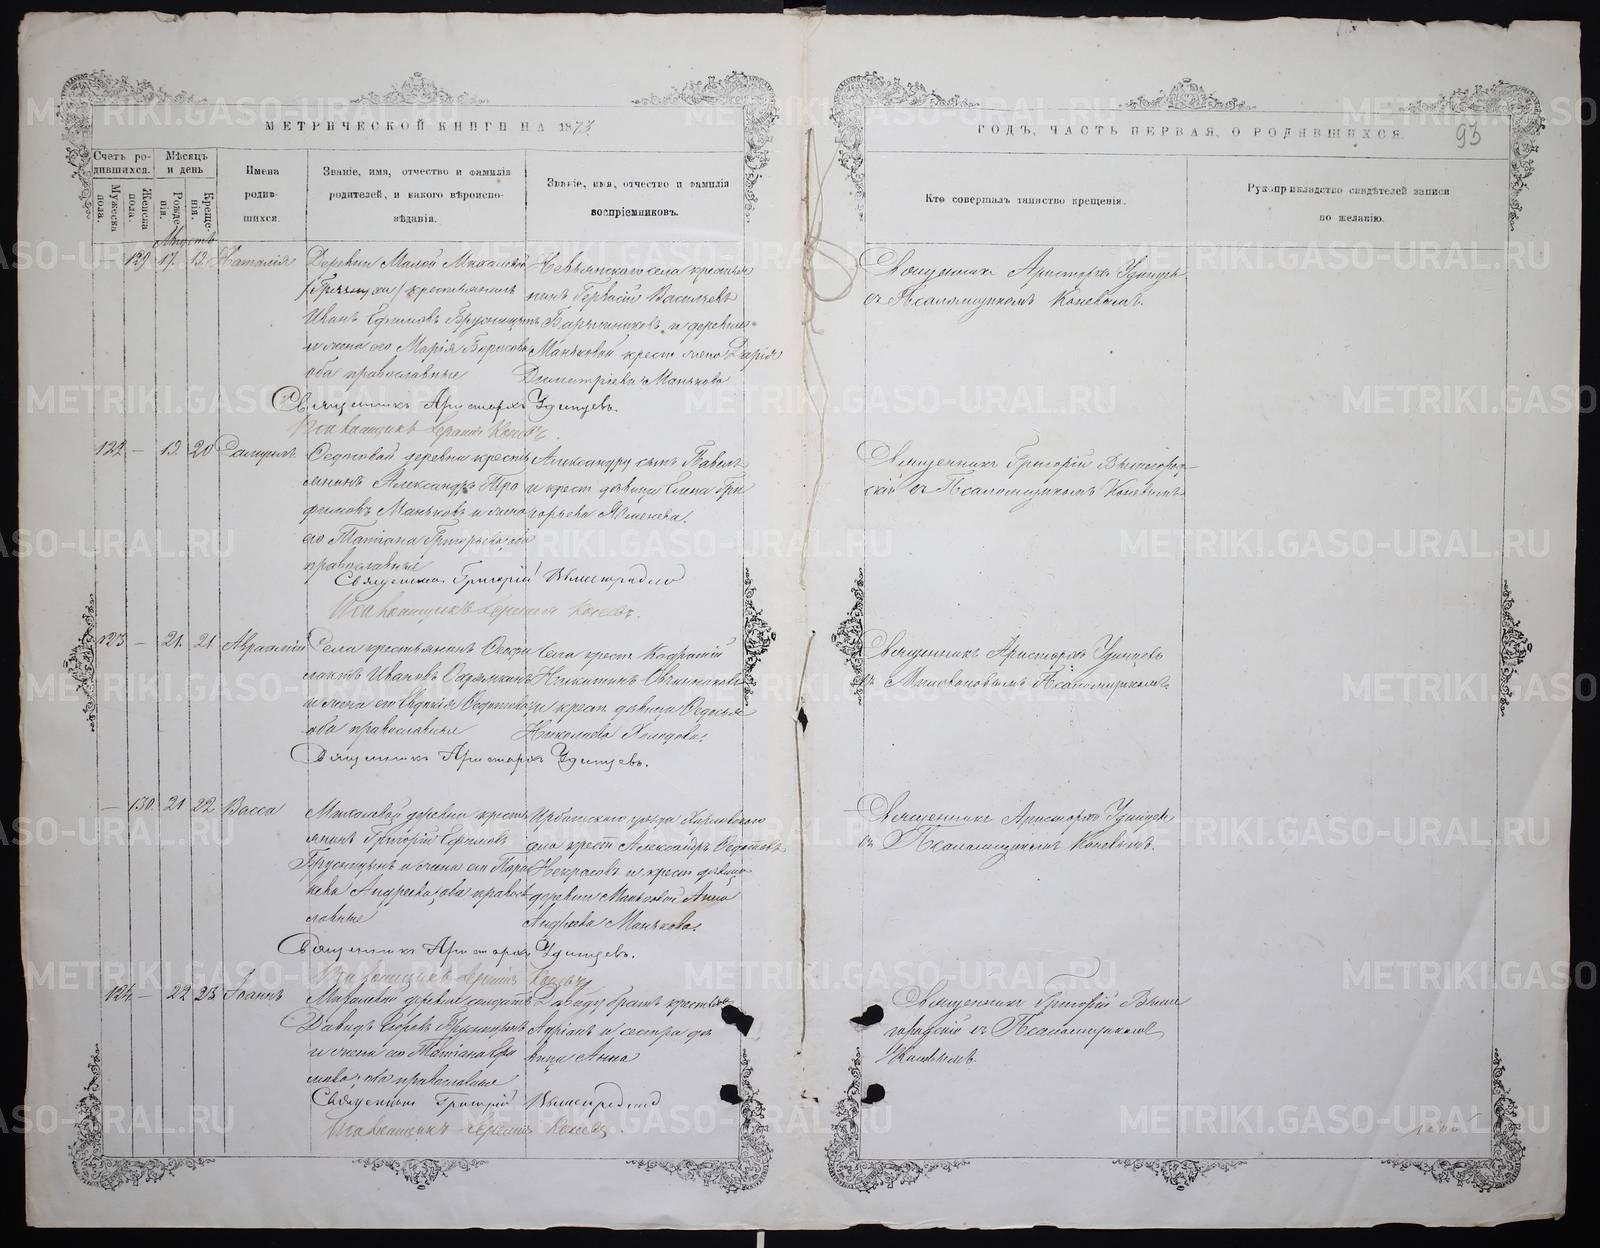 МЕТРИЧЕСКОЙ КНИГИ НА 1873
Счетъ ро-
дившихся.
Мужеска
пола.
Женска
пола.
Мѣсяцъ
и день
Рожде-
нія.
Креще-
нія.
Имена
родив-
шихся.
Званіе, имя, отчество и фамилія
родителей, и какого вѣроиспо-
вѣданія.
Званіе, имя, отчество и фамилія
воспріемниковъ.
Августъ
129 17. 19. Наталія
Деревни Малой Михалевой
крестьянинъ
Иванъ Ефимовъ Брусницынъ
и жена его Марія Борисова
оба православные
Невьянскаго села крестья
нинъ Гервасій Васильевъ
и деревни
Маньковой крест. жена Дарія
Димитріева Манькова
Священникъ Аристархъ Удинцевъ.
Псаломщикъ Коневъ.
122 — 19. 20
Ѳедотовой деревни кресть
янинъ Александръ Тро
фимовъ Маньковъ и жена
его Татіана Григорьева, оба
православные
Александру сынъ Павелъ
и крест. дѣвица Елена Гри
горьева
Священникъ Григорій Вышегородскій
Псаломщикъ Коневъ.
123 — 21. 21 Авраамій
Села крестьянинъ Ѳеофи
лактъ Ивановъ
и жена его Евдокія
оба православные
Села крест.
Никитинъ Овчинниковъ
и крест. дѣвица Ѳедосья
Николаева Холодова.
Священникъ Аристархъ Удинцевъ.
— 130. 21 22 Васса
Михалевой деревни кресть
янинъ Григорій Ефимовъ
Брусницынъ и жена его Пара
скева Андреева, оба правос
лавные
Ирбитскаго уѣзда
села крест. Александръ Ѳедотовъ
Некрасовъ и крест. дѣвица
деревни Маньковой Анна
Андреева Манькова.
Священникъ Аристархъ Удинцевъ.
Псаломщикъ Коневъ
124. — 22 23 Іоаннъ
Михалевой деревни солдатъ
Давидъ Брусницынъ
и жена его Татіана
оба православные
Давиду братъ крестьян.
Адріанъ и сестра дѣ
вица Анна
Священникъ Григорій Вышегородскій
Псаломщикъ Коневъ.
ГОДЪ, ЧАСТЬ ПЕРВАЯ, О РОДИВШИХСЯ.
93
Кто совершалъ таинство крещенія.
Рукоприкладство свидѣтелей записи
по желанію.
Священникъ Аристархъ Удинцевъ
съ Псаломщикомъ Коневымъ.
Священникъ Григорій Вышегород-
скій съ Псаломщикомъ Коневымъ
Священникъ Аристархъ Удинцевъ
съ Псаломщикомъ
Священникъ Аристархъ Удинцевъ
съ Псаломщикомъ Коневымъ.
Священникъ Григорій Выше
городскій съ Псаломщикомъ
Коневымъ.
METRIKI.GASO-URAL.RU